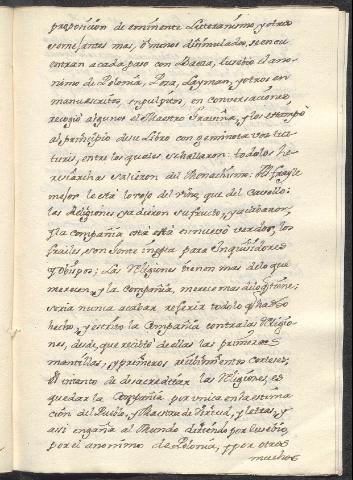 proposicion de eminente Litteranismo, y otras
semejantes mas, o menos disimuladas, se encu
entran a cada paso con Daeza, Eusebio el ano-
nimo de Polonia, Posa, Layman, y otros en
manuscritos, en pulpitos, en conversaciones
recogio algunos el Maestro Gravina, y los estampò
al principio de su Libro con geminota vox tur
turis, entre los quales se hallaron: todos los he-
resiarchas salieron del Monachismo: Al frayle
mejor le està lo rojo del vino, que del Capello:
las Religiones ya dieron su fructo, y acabaron,
y la Compañia oia està en nuevo verdor, los
frailes son gente inepta para Inquisidores
y Obispos; Las Religiones tienen mas de lo que
merecen, y la Compañia, merece mas de lo q̃ tiene;
seria nunca acabar referir todo lo q̃ ha
hecho, y escrito la Compañia contra las Religio
nes, desde que recibiò de ellas las primeras
mantillas, y primeros recibimientos corteses;
El intento de desacreditar las Religiones, es
quedar la Compañia por unica en la estima
cion del Pueblo, y Maestra de Virtud, y letras, y
assi engaña al Mundo diciendo por Eusebio,
por el anonimo de Polonia, y por otros
muchos